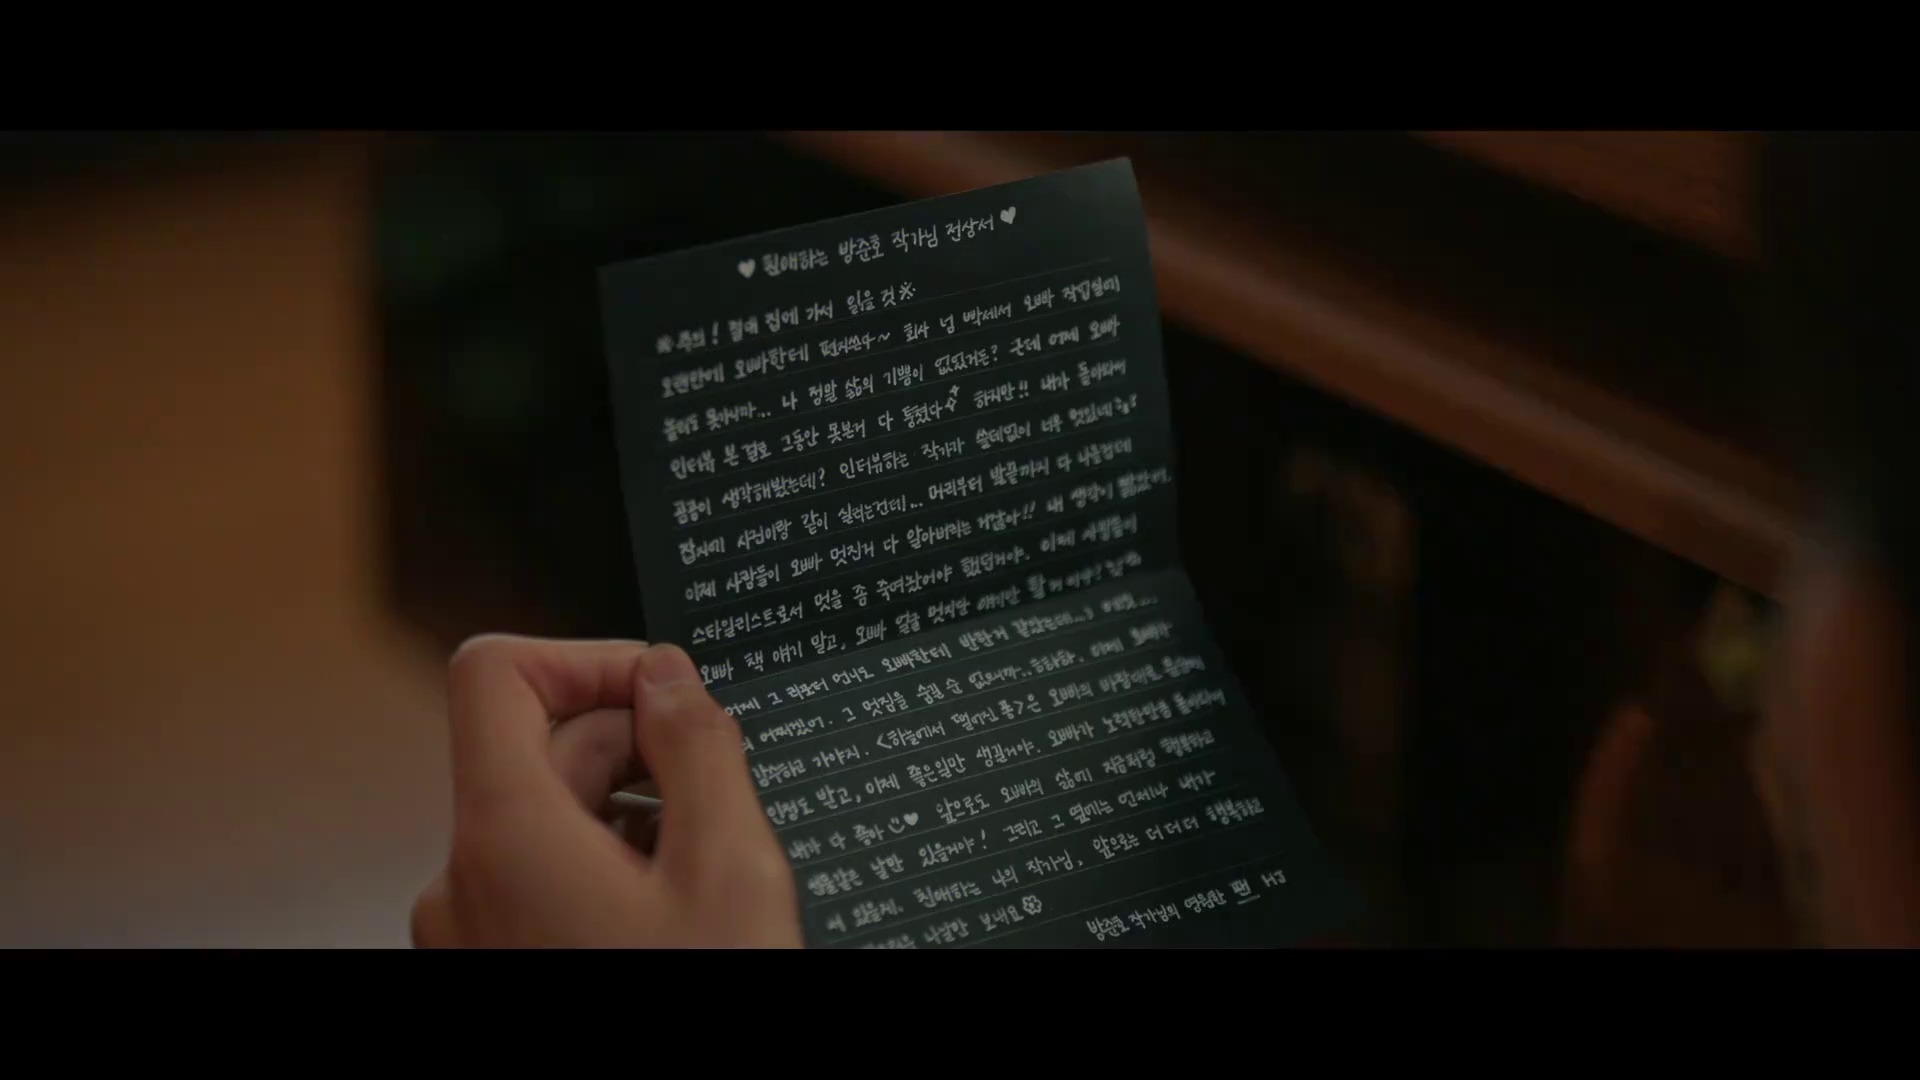 ♥ 친애하는 방준호 작가님 전상서 ♥
※주의! 절대 집에 가서 읽을 것※
오랜만에 오빠한테 편지쓴다~ 회사 넘 빡세서 오빠 작업실에
놀러도 못가니까... 나 정말 삶의 기쁨이 없었거든? 근데 어제 오빠
인터뷰 본 걸로 그동안 못본거 다 퉁쳤다 하지만!! 내가 돌아와서
곰곰이 생각해봤는데? 인터뷰하는 작가가 쓸데없이 너무 멋있네?!
잡지에 사진이랑 같이 실리는건데... 머리부터 발끝까지 다 나올건데
이제 사람들이 오빠 멋진거 다 알아버리는 거잖아!! 내 생각이 짧았어.
스타일리스트로서 멋을 좀 죽여놨어야 했던거야. 이제 사람들이
오빠 책 얘기 말고, 오빠 얼굴 멋지단 얘기만 할거 아냐?
어제 그 리포터 언니도 오빠한테 반한거 같았는데...)
어쩌겠어. 그 멋짐을 숨길 순 없으니까..흐하하. 이제 오빠가
감수하고 가야지. <하늘에서 떨어진 롱>은 오빠의 바람대로
인정도 받고, 이제 좋은일만 생길거야. 오빠가 노력한만큼 돌아와서
내가 다 좋아 ♥ 앞으로도 오빠의 삶에 지금처럼 행복하고
선물같은 날만 있을거야! 그리고 그 옆에는 언제나 내가
서 있을게. 친애하는 나의 작가님, 앞으로는 더더더 행복하고
나날만 보내요
방준호 작가님의 영원한 팬 HJ